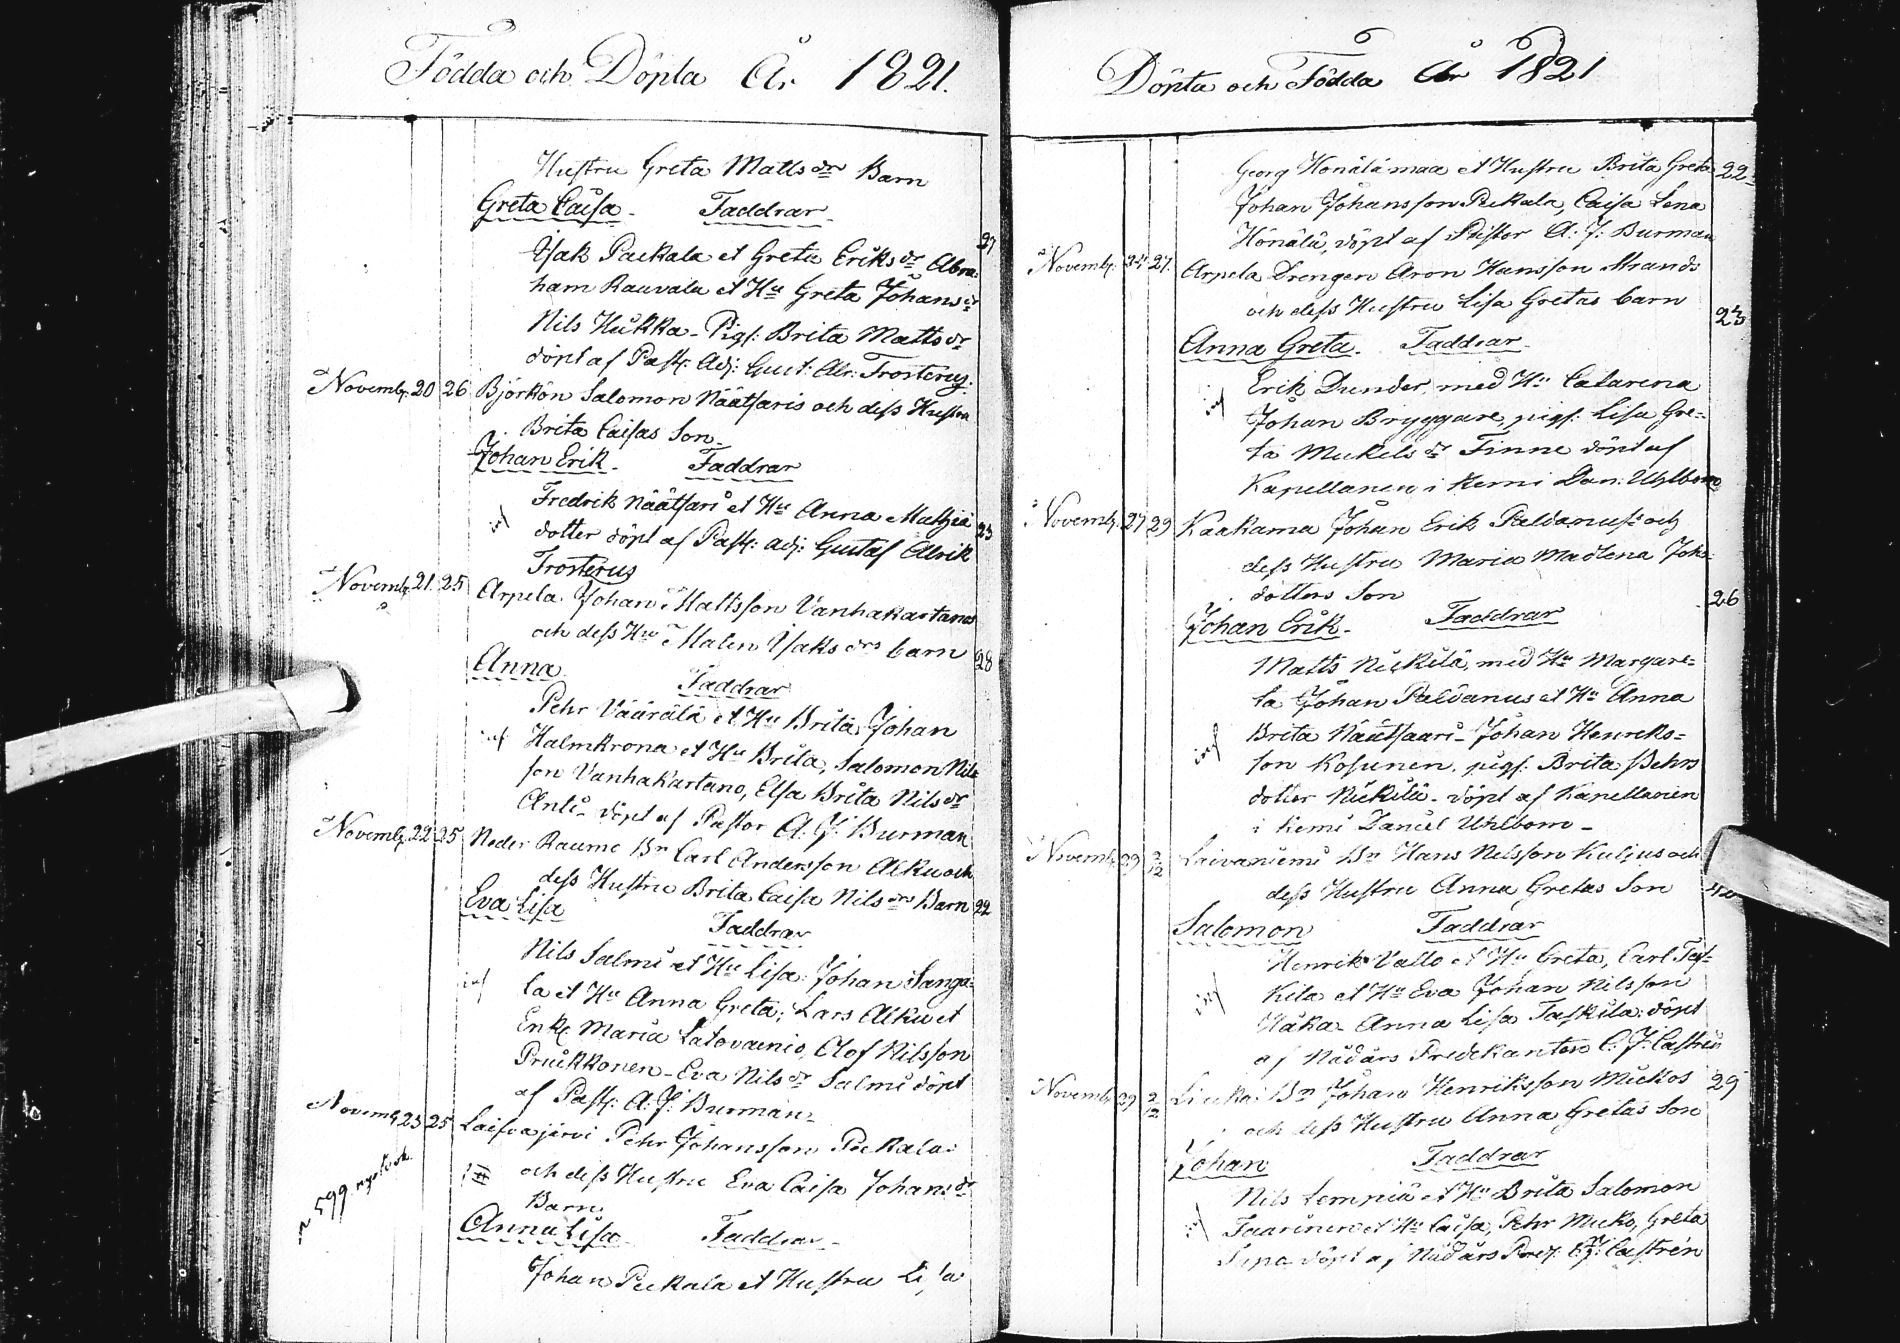 Födda och Döpta År 1821.
Hustru Greta Matts dr Barn
Greta Caisa. Faddrar
27
Isak Paekala et Greta Eriks dr Abra-
ham Rauvala et Hu Greta Johans dr
Nils Hukka - Pig: Brita Matts dr
döpt af Past: Adj: Gust: Alr: Trosterus.
Novemb. 20 26 Björkön Salomon Näätsaris och dess Hustru
Brita Caisas Son.
Johan Erik. Faddrar
Fredrik Näätsari et Hu Anna Mathiæ
23
dotter döpt af Past: adj: Gustaf Alrik
Trosterus
Novemb. 21 25 Arpela Johan Mattsson Vanhakartano
och dess Hu Malin Isaks drs barn 28
Anna Faddrar
Pehr Väärälä et Hu Brita, Johan
Halmkrona et Hu Brita, Salomon Nils-
son Vanhakartano, Elsa Brita Nils dr
Anti - döpt af Pastor A. J. Burman
Novemb. 22 25 Neder Raumo Bn Carl Andersson Alku och
dess Hustru Brita Caisa Nils drs Barn 22
Eva Lisa
Faddrar
Nils Salmi et Hu Lisa: Johan Sanga-
la et Hu Anna Greta; Lars Alku et
Enk: Maria Latovainio, Olof Nilsson
Pruikkonen - Eva Nils dr Salmi döpt
af Past: A: J: Burman
Novemb. 23 25 Laisvajärvi Pehr Johansson Peekala
och dess Hustru Eva Caisa Johans dr
Barn
n 599
Anna Lisa Faddrar
Johan Peekala et Hustru Lisa
Döpta och Födda År 1821
Georg Honälämaa et Hustru Brita Greta 22
Johan Johansson Peekala, Caisa Lena
Hönälä, döpt af Pastor A: J: Burman
Novemb. 24 27. Arpela Drengen Aron Hansson Strands
och dess Hustru Lisa Gretas barn
23
Anna Greta. Faddrar
Erik Dunder, med Hu Catarina
Johan Bryggare, pig: Lisa Gre-
ta Mickels dr Finne döpt af
Kapellanen i Kemi Dan: Uhlbom
Novemb. 27 29 Kaakama Johan Erik Paldanus och
dess Hustru Maria Madlena Joh-
dotters Son
26
Johan Erik. Faddrar
Matts Nickilä, med Hu Margare-
ta Johan Paldanus et Hu Anna
Brita Näätsaari - Johan Henriks-
son Kosunen. pigs. Brita Pehrs
dotter Nickilä - döpt af Kapellanen
i Kemi Daniel Uhlbom -
Novemb. 29 2/12 Laivaniemi Bn Hans Nilsson Kuljus och
dess Hustru Anna Gretas Son 40
Salomon Faddrar
Henrik Vallo et Hu Greta, Carl Tas-
kila et Hu Eva Johan Nilsson
Anna Lisa Taskila: döpt
af Nådårs Predikanten C. J. Castrén
Novemb. 29 2/12 Bn Johan Henriksson Mickos 29
och dess Hustru Anna Gretas Son
Johan Faddrar
Nils Lempiä et Hu Brita Salomon
Taarinen et Hu Caisa, Pehr Micko, Greta
döpt af Nådårs Pred. C. J. Castrén